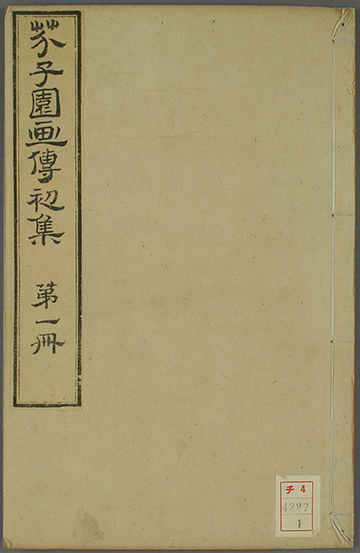 芥子園画傳初集 第一冊
チ 4
1